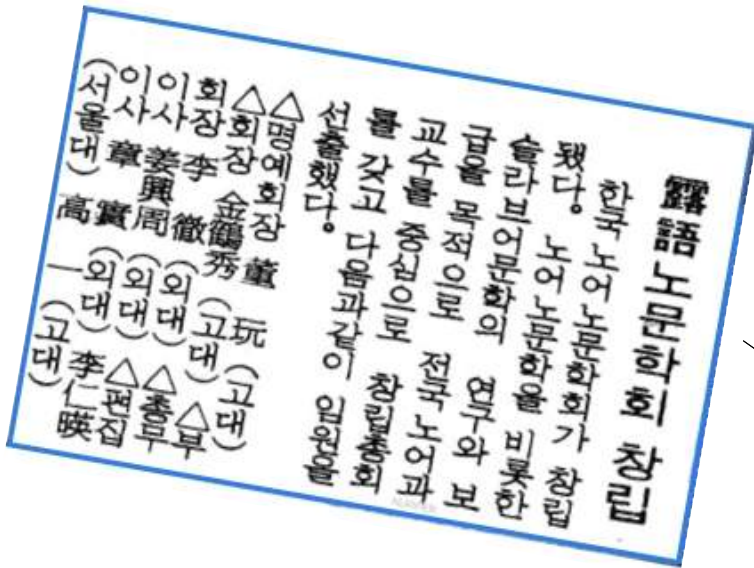 露語노문학회 창립
한국 노어 노문학회가 창립
됐다。 노어 노문학을 비롯한
슬라브어문학의 연구와 보
급을 목적으로 전국 노어과
교수를 중심으로 창립총회
를 갖고 다음과같이 임원을
선출했다。
△명예회장 董 玩 (고대)
△회장 金鶴秀 (고대) △부
회장 李 徹 (외대) △총무
이사 姜興周 (외대) △편집
이사 章 實 (외대) 李仁暎
(서울대) 高 一 (고대)